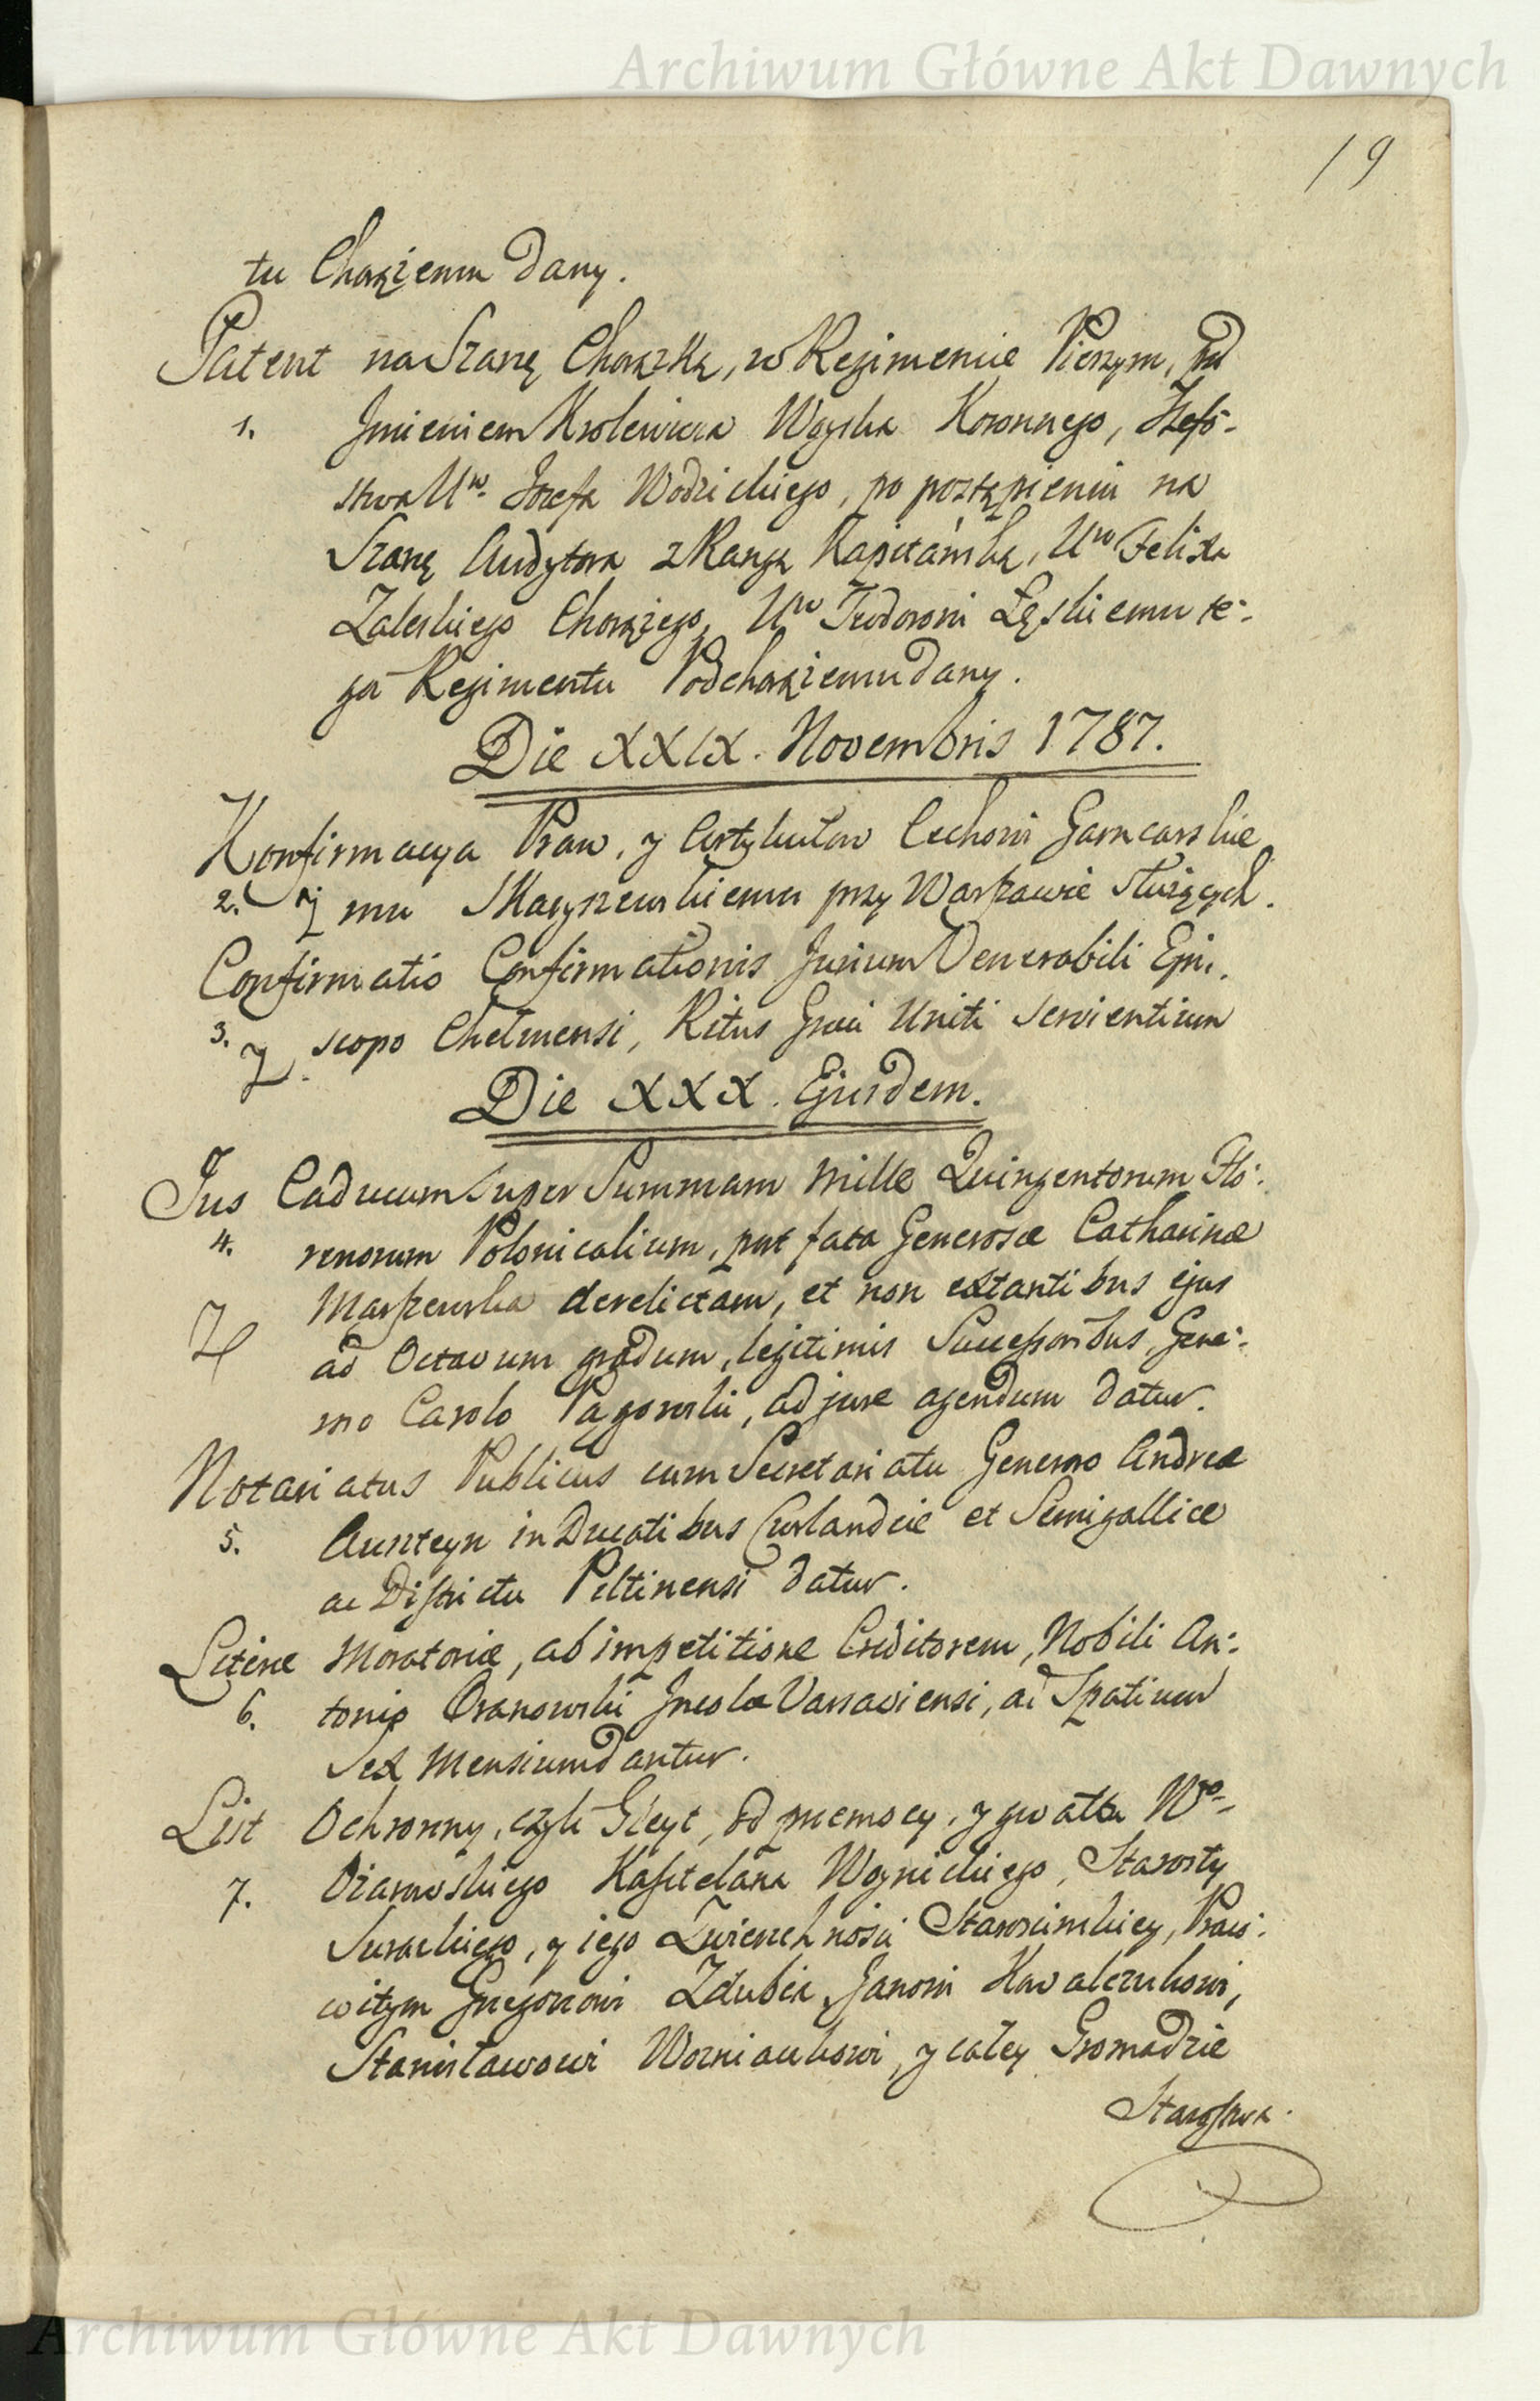 Archiwum Główne Akt Dawnych
19
tu Chorążemu dany.
Patent na Szarżę Chorążką, w Regimencie Pierszym, pod
1. Jmieniem Krolewicza Woyska Koronnego, Szefo-
stwa Uro. Jozefa Wodzickiego, po postąpieniu na
Szarżę Audytora z Rangą Kapitańską, Uro Felixa
Zaleskiego Chorążego, Uro Teodorowi Łęskiemu te-
go Regimentu Podchorążemu dany.
Die XXIX. Novembris 1787.
Konfirmacya Praw, y Artykułow Cechowi Garncarskie
2. mu Skaryszewskiemu przy Warszawie służących.
Confirmatio Confirmationis Jurium Venerabili Epi-
3. scopo Chelmensi, Ritus Græci Uniti servientium
Die XXX. Ejusdem.
Jus Caducum super Summam Mille Quingentorum Flo-
4. renorum Polonicalium, post fata Generosæ Catharinæ
Marszewska derelictam, et non extantibus ejus
ad Octavum gradum, legitimis Successoribus, Gene-
roso Carolo Pągowski, ad jure agendum datur.
Notariatus Publicus cum Secretariatu Generoso Andreæ
5. in Ducatibus Curlandiæ et Semigalliæ
ac Districtu Piltinensi datur.
Literæ Moratoriæ, ab impetitione Creditorem, Nobili An-
6. tonio Oranowski Jncolæ Varsaviensi, ad Spatium
Sex Mensium dantur.
List Ochronny, czyli Gleyt, od przemocy, y gwałtu Wo-
7. Ożarowskiego Kasztelana Woynickiego, Starosty
y iego Zwierzchności Starościnskiey, Prac-
owitym Grzegorzowi Zdubia, Janowi Kowalczukowi,
Stanisławowi Wozniakowi, y całey Gromadzie
Starostwa.
Archiwum Główne Akt Dawnych